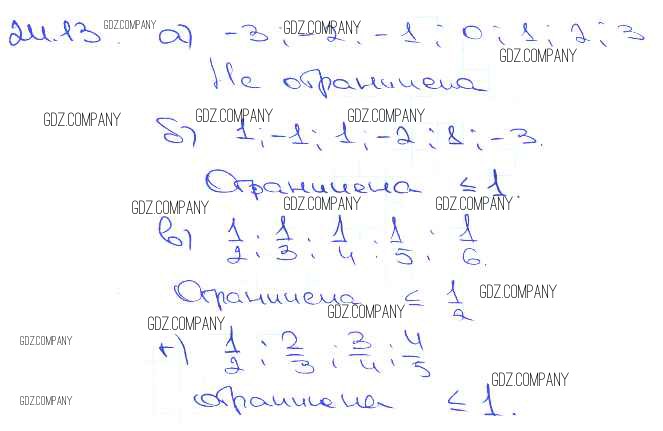 24.13. GDZ.COMPANY а) -3; -2; -1; 0; 1; 2; 3
GDZ.COMPANY
GDZ.COMPANY
Не ограничена
GDZ.COMPANY GDZ.COMPANY GDZ.COMPANY
б) 1; -1; 1; -2; 1; -3.
Ограничена ≤ 1.
GDZ.COMPANY GDZ.COMPANY GDZ.COMPANY
в) 1/2; 1/3; 1/4; 1/5; 1/6.
Ограничена ≤ 1/2 GDZ.COMPANY
GDZ.COMPANY
GDZ.COMPANY
GDZ.COMPANY г) 1/2; 2/3; 3/4; 4/5
GDZ.COMPANY
GDZ.COMPANY ограничена ≤ 1.